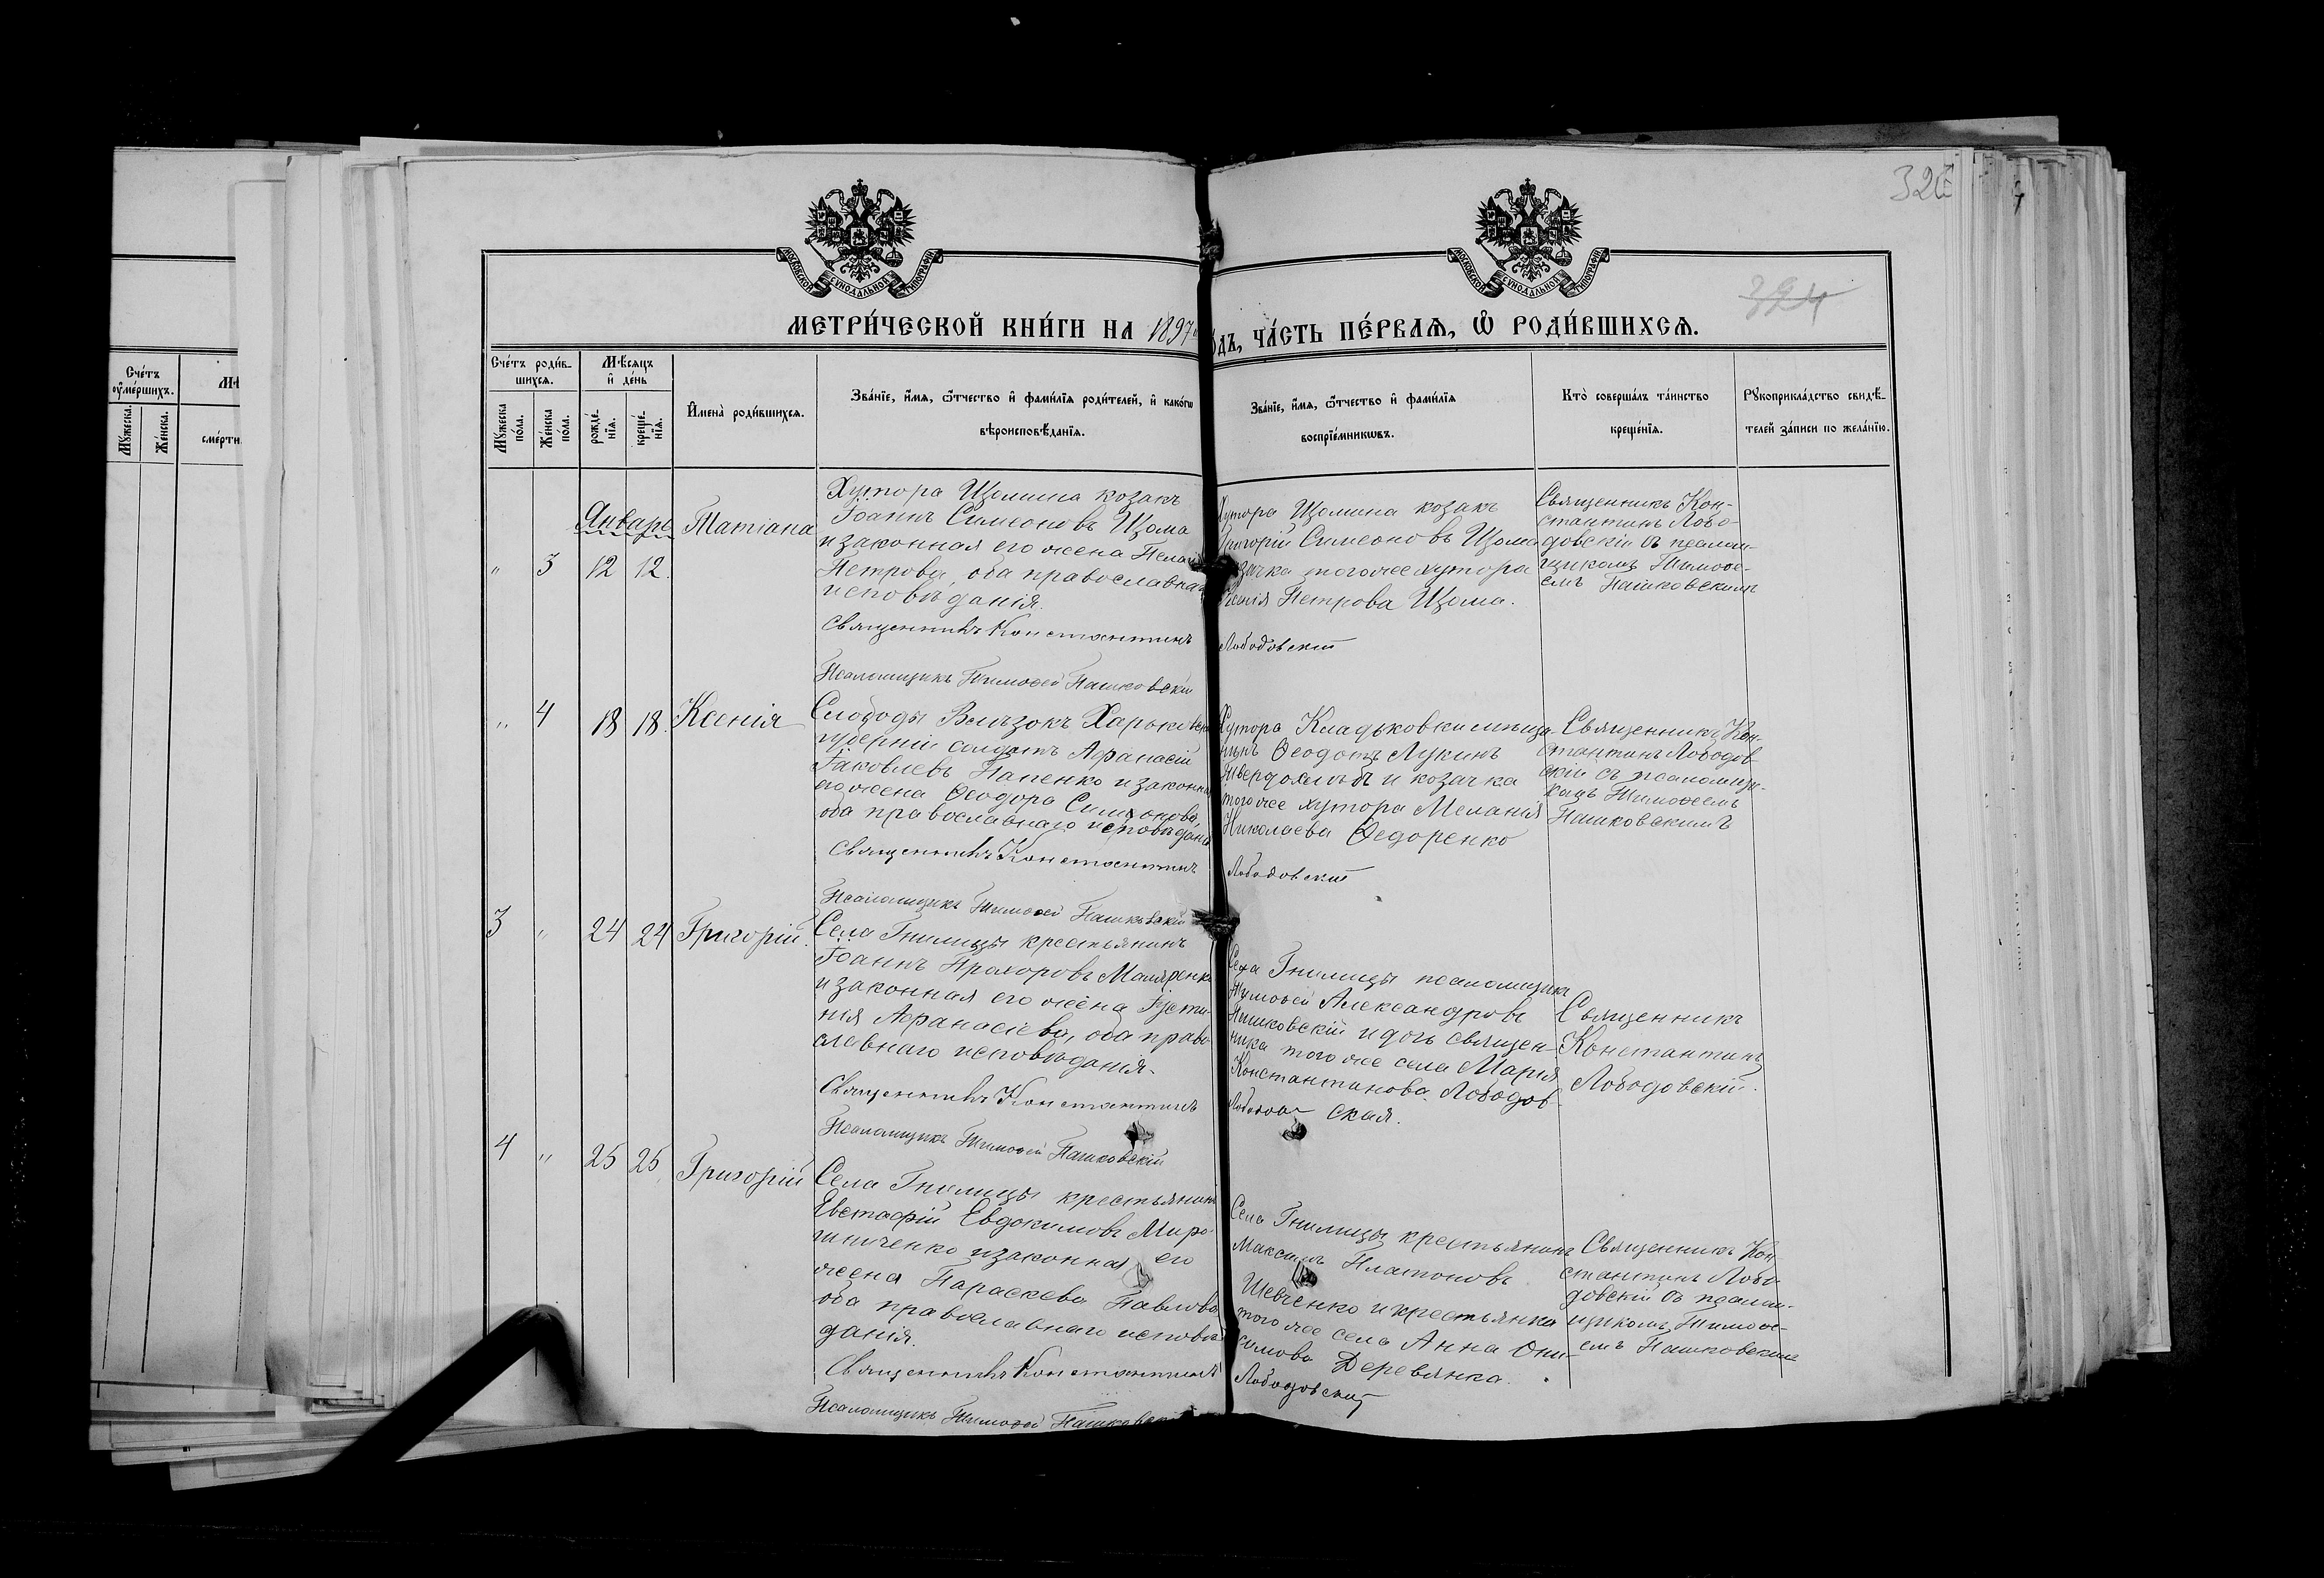 326
324
МОСКОВСКОЙ СѴНОДАЛЬНОЙ ТИПОГРАФІИ
МОСКОВСКОЙ СѴНОДАЛЬНОЙ ТИПОГРАФІИ
МЕТРИ́ЧЕСКОЙ КНИ́ГИ НА 1897
ОДЪ, ЧА́СТЬ ПЕ́РВАѦ, Ѡ РОДИ́ВШИХСѦ.
Сче́тъ оу҆ме́ршихъ.
Мꙋ́жеска.
Же́нска.
Мѣ
сме́рти
Сче́тъ роди́в-
шихсѧ.
Мꙋ́жеска по́ла.
Же́нска по́ла.
Мѣ́сѧцъ
и҆ де́нь
рожде́нїѧ.
креще́нїѧ.
И҆мена̀ роди́вшихсѧ.
Зва́нїе, и҆́мѧ, ѻ҆́тчество и҆ фами́лїѧ роди́телей, и҆ како́гѡ
вѣроисповѣ́данїѧ.
Зва́нїе, и҆́мѧ, ѻ҆́тчество и҆ фами́лїѧ
воспрїе́мникѡвъ.
Кто̀ соверша́лъ та́инство
креще́нїѧ.
Рꙋкоприкла́дство свидѣ́-
телей за́писи по жела́нїю.
Январь
" 3 12 12.
Татіана
Хутора Щомина козакъ
Іоаннъ Симеоновъ Щома
и законная его жена Пелагія
Петрова, оба православнаго
исповѣданія.
Священникъ Константинъ
Псаломщикъ Тимоѳей Пашковскій
Хутора Щомина козакъ
Григорій Симеоновъ Щома
козачка тогоже хутора
Петрова Щома.
Лободовскій
Священникъ Кон-
стантинъ Лобо-
довскій съ псалом-
щикомъ Тимоѳе-
емъ Пашковскимъ
" 4 18 18. Ксенія
Слободы Волъзокъ Харьковской
губерніи солдатъ Аѳанасій
Іаковлевъ Папенко и законная
его жена Ѳеодора Симеонова,
оба православнаго исповѣданія
Священникъ Константинъ
Псаломщикъ Тимоѳей Пашковскій
Хутора Кладьковки мѣща-
нинъ Ѳеодотъ Лукинъ
Твердохлѣбъ и козачка
того же хутора Меланія
Николаева Ѳедоренко
Лободовскій
Священникъ Кон-
стантинъ Лободов-
скій съ псаломщи-
комъ Тимоѳеемъ
Пашковскимъ
3 " 24 24 Григорій.
Села Гнилицы крестьянинъ
Іоаннъ Прохоровъ Маляренко
и законная его жена Іусти-
нія Аѳанасіева, оба право-
славнаго исповѣданія.
Священникъ Константинъ
Псаломщикъ Тимоѳей Пашковскій
Села Гнилицы псаломщикъ
Тимоѳей Александровъ
Пашковскій и дочь священ-
ника того же села Марія
Константинова Лободов-
ская.
Священникъ
Константинъ
Лободовскій.
4 " 25 25 Григорій
Села Гнилицы крестьянинъ
Евстаѳій Евдокимовъ Миро-
шниченко и законная его
жена Параскева Павлова
оба православнаго исповѣ-
данія.
Священникъ Константинъ
Псаломщикъ Тимоѳей Пашковскій
Села Гнилицы крестьянинъ
Максимъ Платоновъ
Шевченко и крестьянка
того же села Анна Они-
симова Деревянка.
Лободовскій
Священникъ Кон-
стантинъ Лобо-
довскій съ псалом-
щикомъ Тимоѳе-
емъ Пашковскимъ